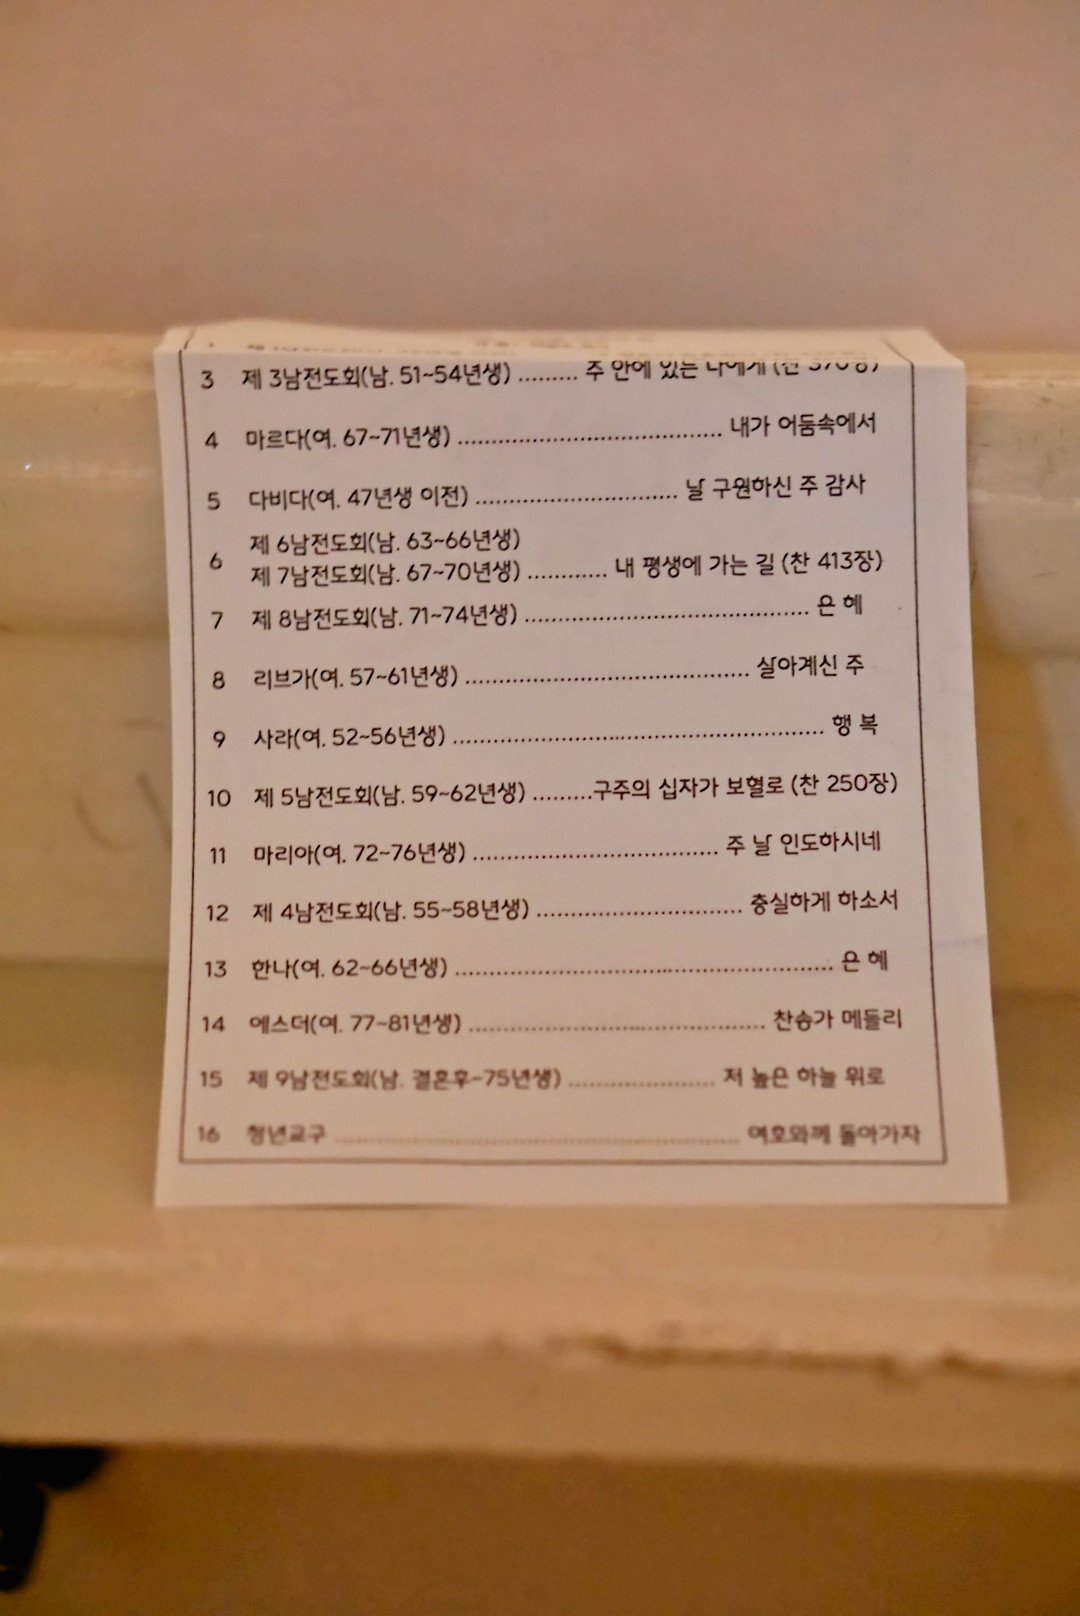 3 제 3남전도회(남. 51~54년생) ......... 주 안에 있는 나에게 (찬 370장)
4 마르다(여. 67~71년생) ....................................... 내가 어둠속에서
5 다비다(여. 47년생 이전) .............................. 날 구원하신 주 감사
6 제 6남전도회(남. 63~66년생)
제 7남전도회(남. 67~70년생) ............ 내 평생에 가는 길 (찬 413장)
7 제 8남전도회(남. 71~74년생) .......................................... 은 혜
8 리브가(여. 57~61년생) .......................................... 살아계신 주
9 사라(여. 52~56년생) ....................................................... 행 복
10 제 5남전도회(남. 59~62년생) .........구주의 십자가 보혈로 (찬 250장)
11 마리아(여. 72~76년생) .................................... 주 날 인도하시네
12 제 4남전도회(남. 55~58년생) .............................. 충실하게 하소서
13 한나(여. 62~66년생) ........................................................ 은 혜
14 에스더(여. 77~81년생) ............................................ 찬송가 메들리
15 제 9남전도회(남. 결혼후~75년생) ...................... 저 높은 하늘 위로
16 청년교구 ............................................................ 여호와께 돌아가자